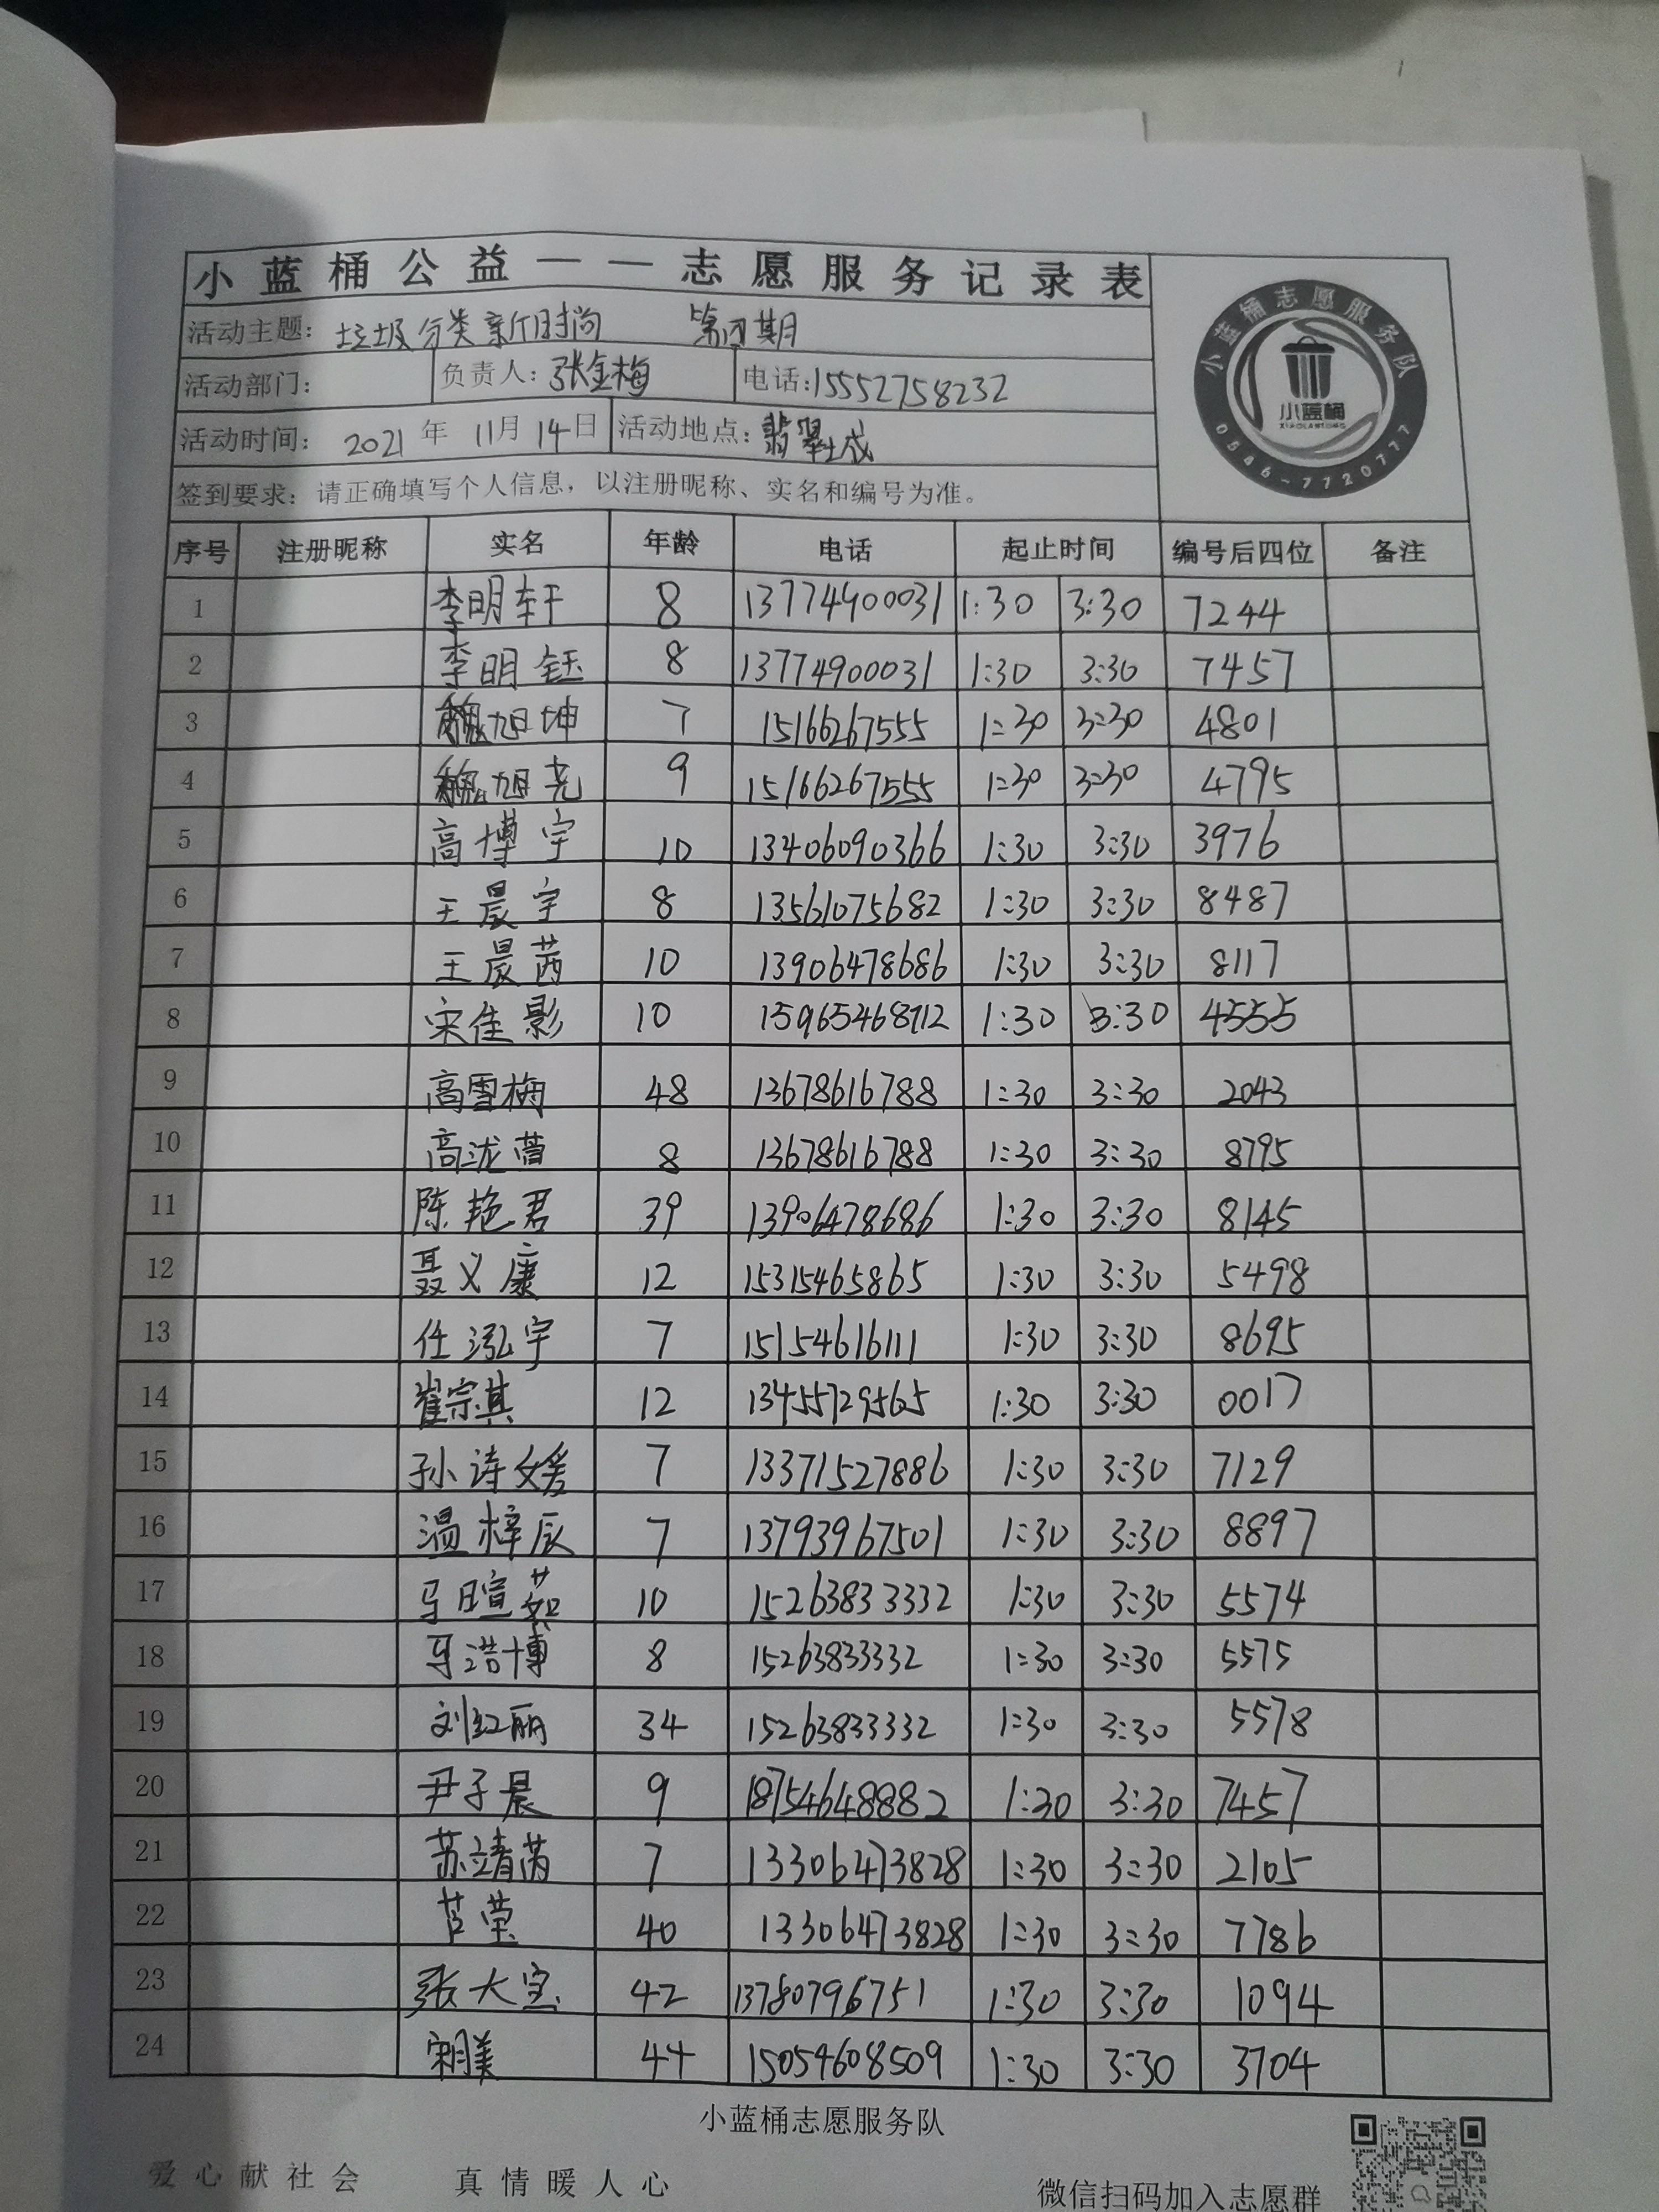 小蓝桶公益——志愿服务记录表
活动主题: 垃圾分类新时尚 第四期
活动部门: 负责人: 张金梅 电话:15552758232
活动时间: 2021年 11月14日 活动地点: 翡翠城
签到要求: 请正确填写个人信息, 以注册昵称、实名和编号为准。
小蓝桶志愿服务队
小蓝桶
XIAOLANTONG
0546-7720777
序号 注册昵称 实名 年龄 电话 起止时间 编号后四位 备注
1 李明轩 8 13774900031 1:30 3:30 7244
2 李明钰 8 13774900031 1:30 3:30 7457
3 魏旭坤 7 15166267555 1:30 3:30 4801
4 魏旭尧 9 15166267555 1:30 3:30 4795
5 高博宇 10 13406090366 1:30 3:30 3976
6 王晨宇 8 13561075682 1:30 3:30 8487
7 王晨茜 10 13906478686 1:30 3:30 8117
8 宋佳影 10 15965468712 1:30 3:30 4555
9 高雪梅 48 13678616788 1:30 3:30 2043
10 高泷 8 13678616788 1:30 3:30 8795
11 陈艳君 39 13906478686 1:30 3:30 8145
12 聂义康 12 15315465865 1:30 3:30 5498
13 任泓宇 7 15154616111 1:30 3:30 8695
14 崔宗其 12 13455729565 1:30 3:30 0017
15 孙诗媛 7 13371527886 1:30 3:30 7129
16 温梓辰 7 13793967501 1:30 3:30 8897
17 马暄茹 10 15263833332 1:30 3:30 5574
18 马浩博 8 15263833332 1:30 3:30 5575
19 刘红丽 34 15263833332 1:30 3:30 5578
20 尹子晨 9 18754648882 1:30 3:30 7457
21 苏靖芮 7 13306473828 1:30 3:30 2105
22 苕莹 40 13306473828 1:30 3:30 7786
23 张大宝 42 13780796751 1:30 3:30 1094
24 44 15054608509 1:30 3:30 3704
小蓝桶志愿服务队
爱心献社会 真情暖人心 微信扫码加入志愿群